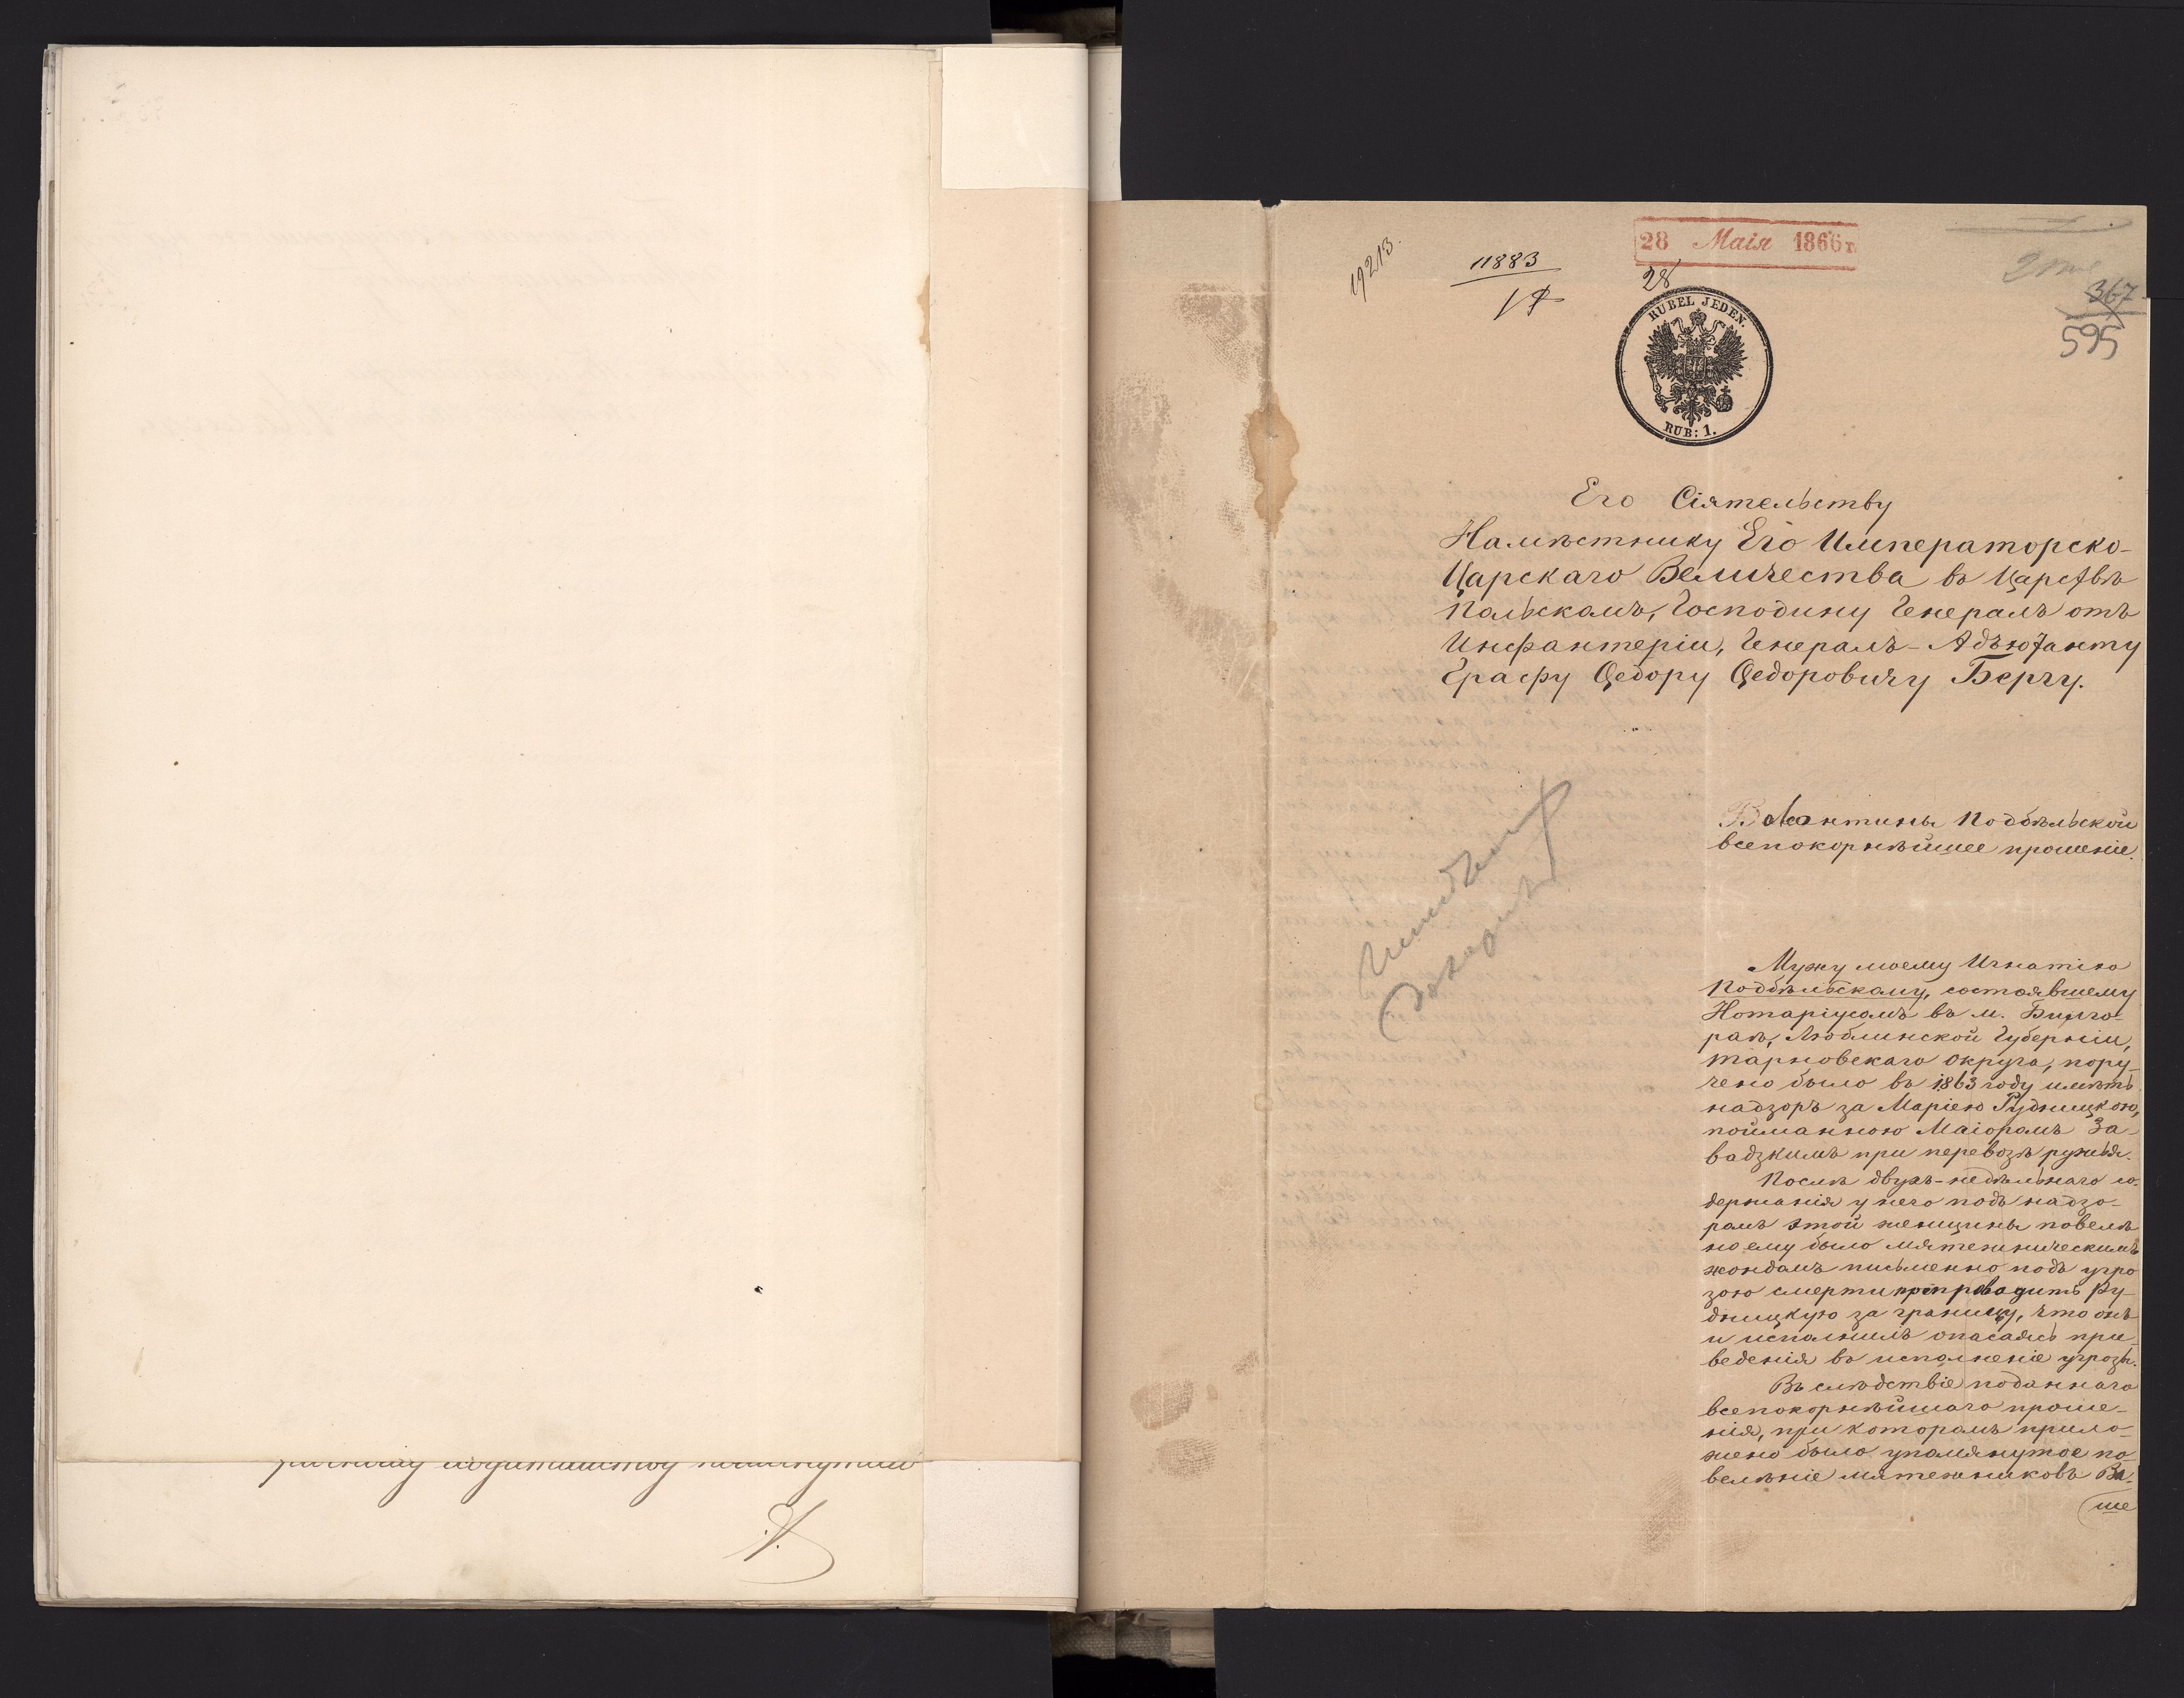 28 Маія 1866 г.
19213.
11883
28
2
367
595
RUBEL JEDEN.
RUB: 1.
Его Сіятельству
Намѣстнику Его Императорско-
Царскаго Величества въ Царствѣ
Польскомъ, Господину Генералъ отъ
Инфантеріи, Генералъ-Адъютанту
Графу Ѳедору Ѳедоровичу Бергу.
Подбѣльской
всепокорнѣйшее прошеніе.
Мужу моему Игнатію
Подбѣльскому, состоявшему
Нотаріусомъ въ м. Билго-
раѣ, Люблинской Губерніи,
тарновскаго округа, пору-
чено было въ 1863 году имѣть
надзоръ за Маріею Рудницкою,
пойманною Маіоромъ За-
вадзкимъ при перевозѣ ружья.
Послѣ двухъ-недѣльнаго со-
держанія у него подъ надзо-
ромъ этой женщины повелѣ-
но ему было мятежническимъ
жондомъ письменно подъ угро
зою смерти препроводить Ру-
дницкую за границу, что онъ
и исполнилъ опасаясь при-
веденія въ исполненіе угрозы.
Въ слѣдствіе поданнаго
всепокорнѣйшаго проше-
нія, при которомъ прило-
жено было упомянутое по-
велѣніе мятежниковъ Ва-
ше